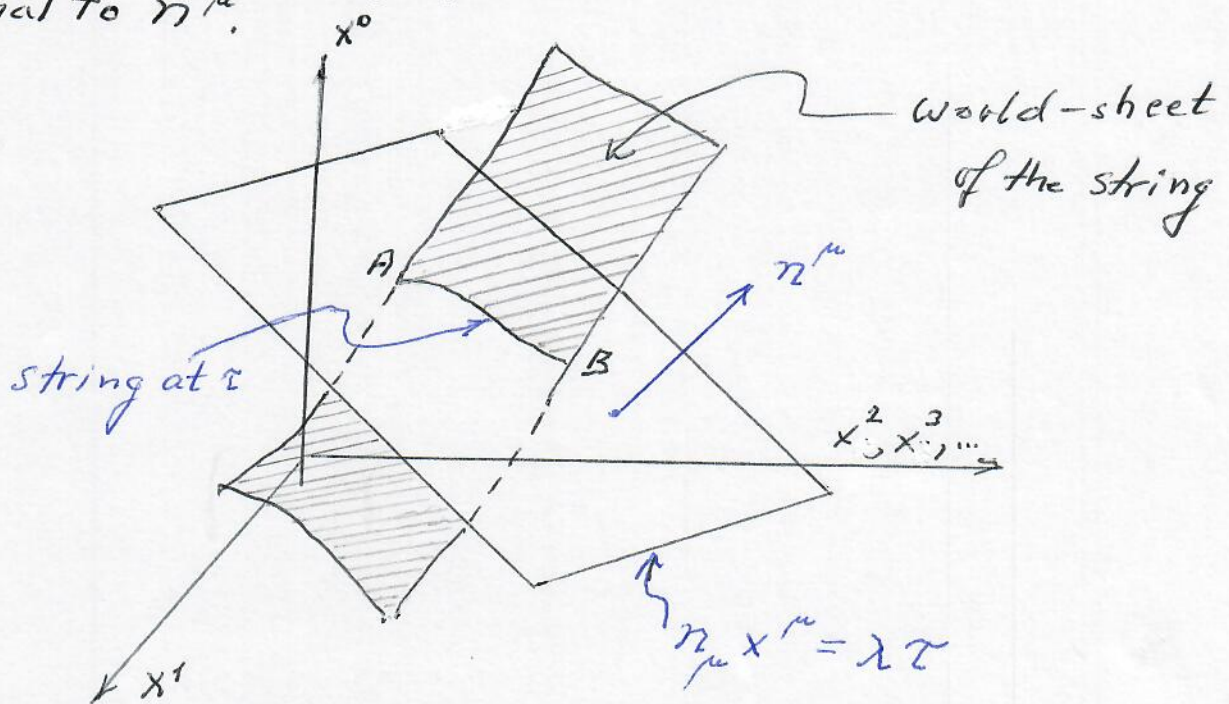 to n^μ.
x⁰
world-sheet
of the string
A
n^μ
string at τ
B
x², x³, ...
n_μ x^μ = λ τ
x¹